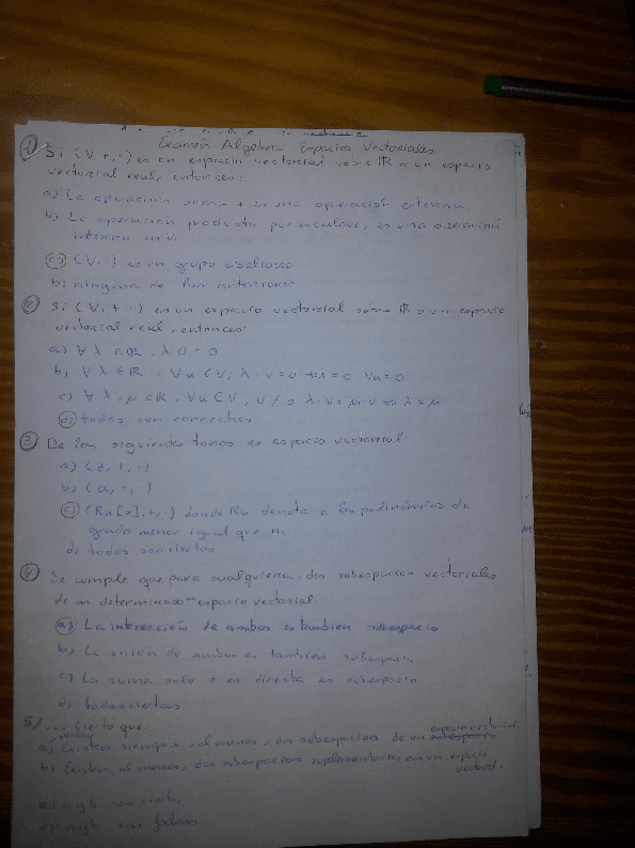 Examen Algebra Espacios Vectoriales
1) Si (V, +, ·) es un espacio vectorial sobre IR o un espacio
vectorial real, entonces:
a) La operación suma + es una operación externa.
b) La operación producto por escalares, es una operación
interna en V.
c) (V, ·) es un grupo abeliano
b) ninguna de las anteriores
2) Si (V, +, ·) es un espacio vectorial sobre IR o un espacio
vectorial real, entonces:
a) ∀ λ ∈ IR, λ·0 = 0
b) ∀ λ ∈ IR, ∀u ∈ V, λ·v = 0 λ = 0 u = 0
c) ∀ λ, μ ∈ IR, ∀u ∈ V, λ·v = μ·v ⇒ λ = μ
d) todas son correctas
3) De las siguientes es espacio vectorial
a) (Z, +, ·)
b) (Q, +, ·)
c) (Rn[x], +, ·) donde Rn denota a los polinomios de
grado menor igual que n.
d) todas son ciertas
4) Se cumple que para cualquiera, dos subespacios vectoriales
de un determinado espacio vectorial.
a) La intersección de ambos es tambien subespacio
b) La unión de ambos es tambien subespacio
c) La suma solo si es directa es subespacio
d) todas ciertas.
5) ... Cierto que:
a) Existen siempre, al menos, dos subespacios de un espacio vectorial
b) Existen, al menos, dos subespacios suplementarios en un espacio
vectorial.
c) a y b son ciertas
e) a y b son falsas